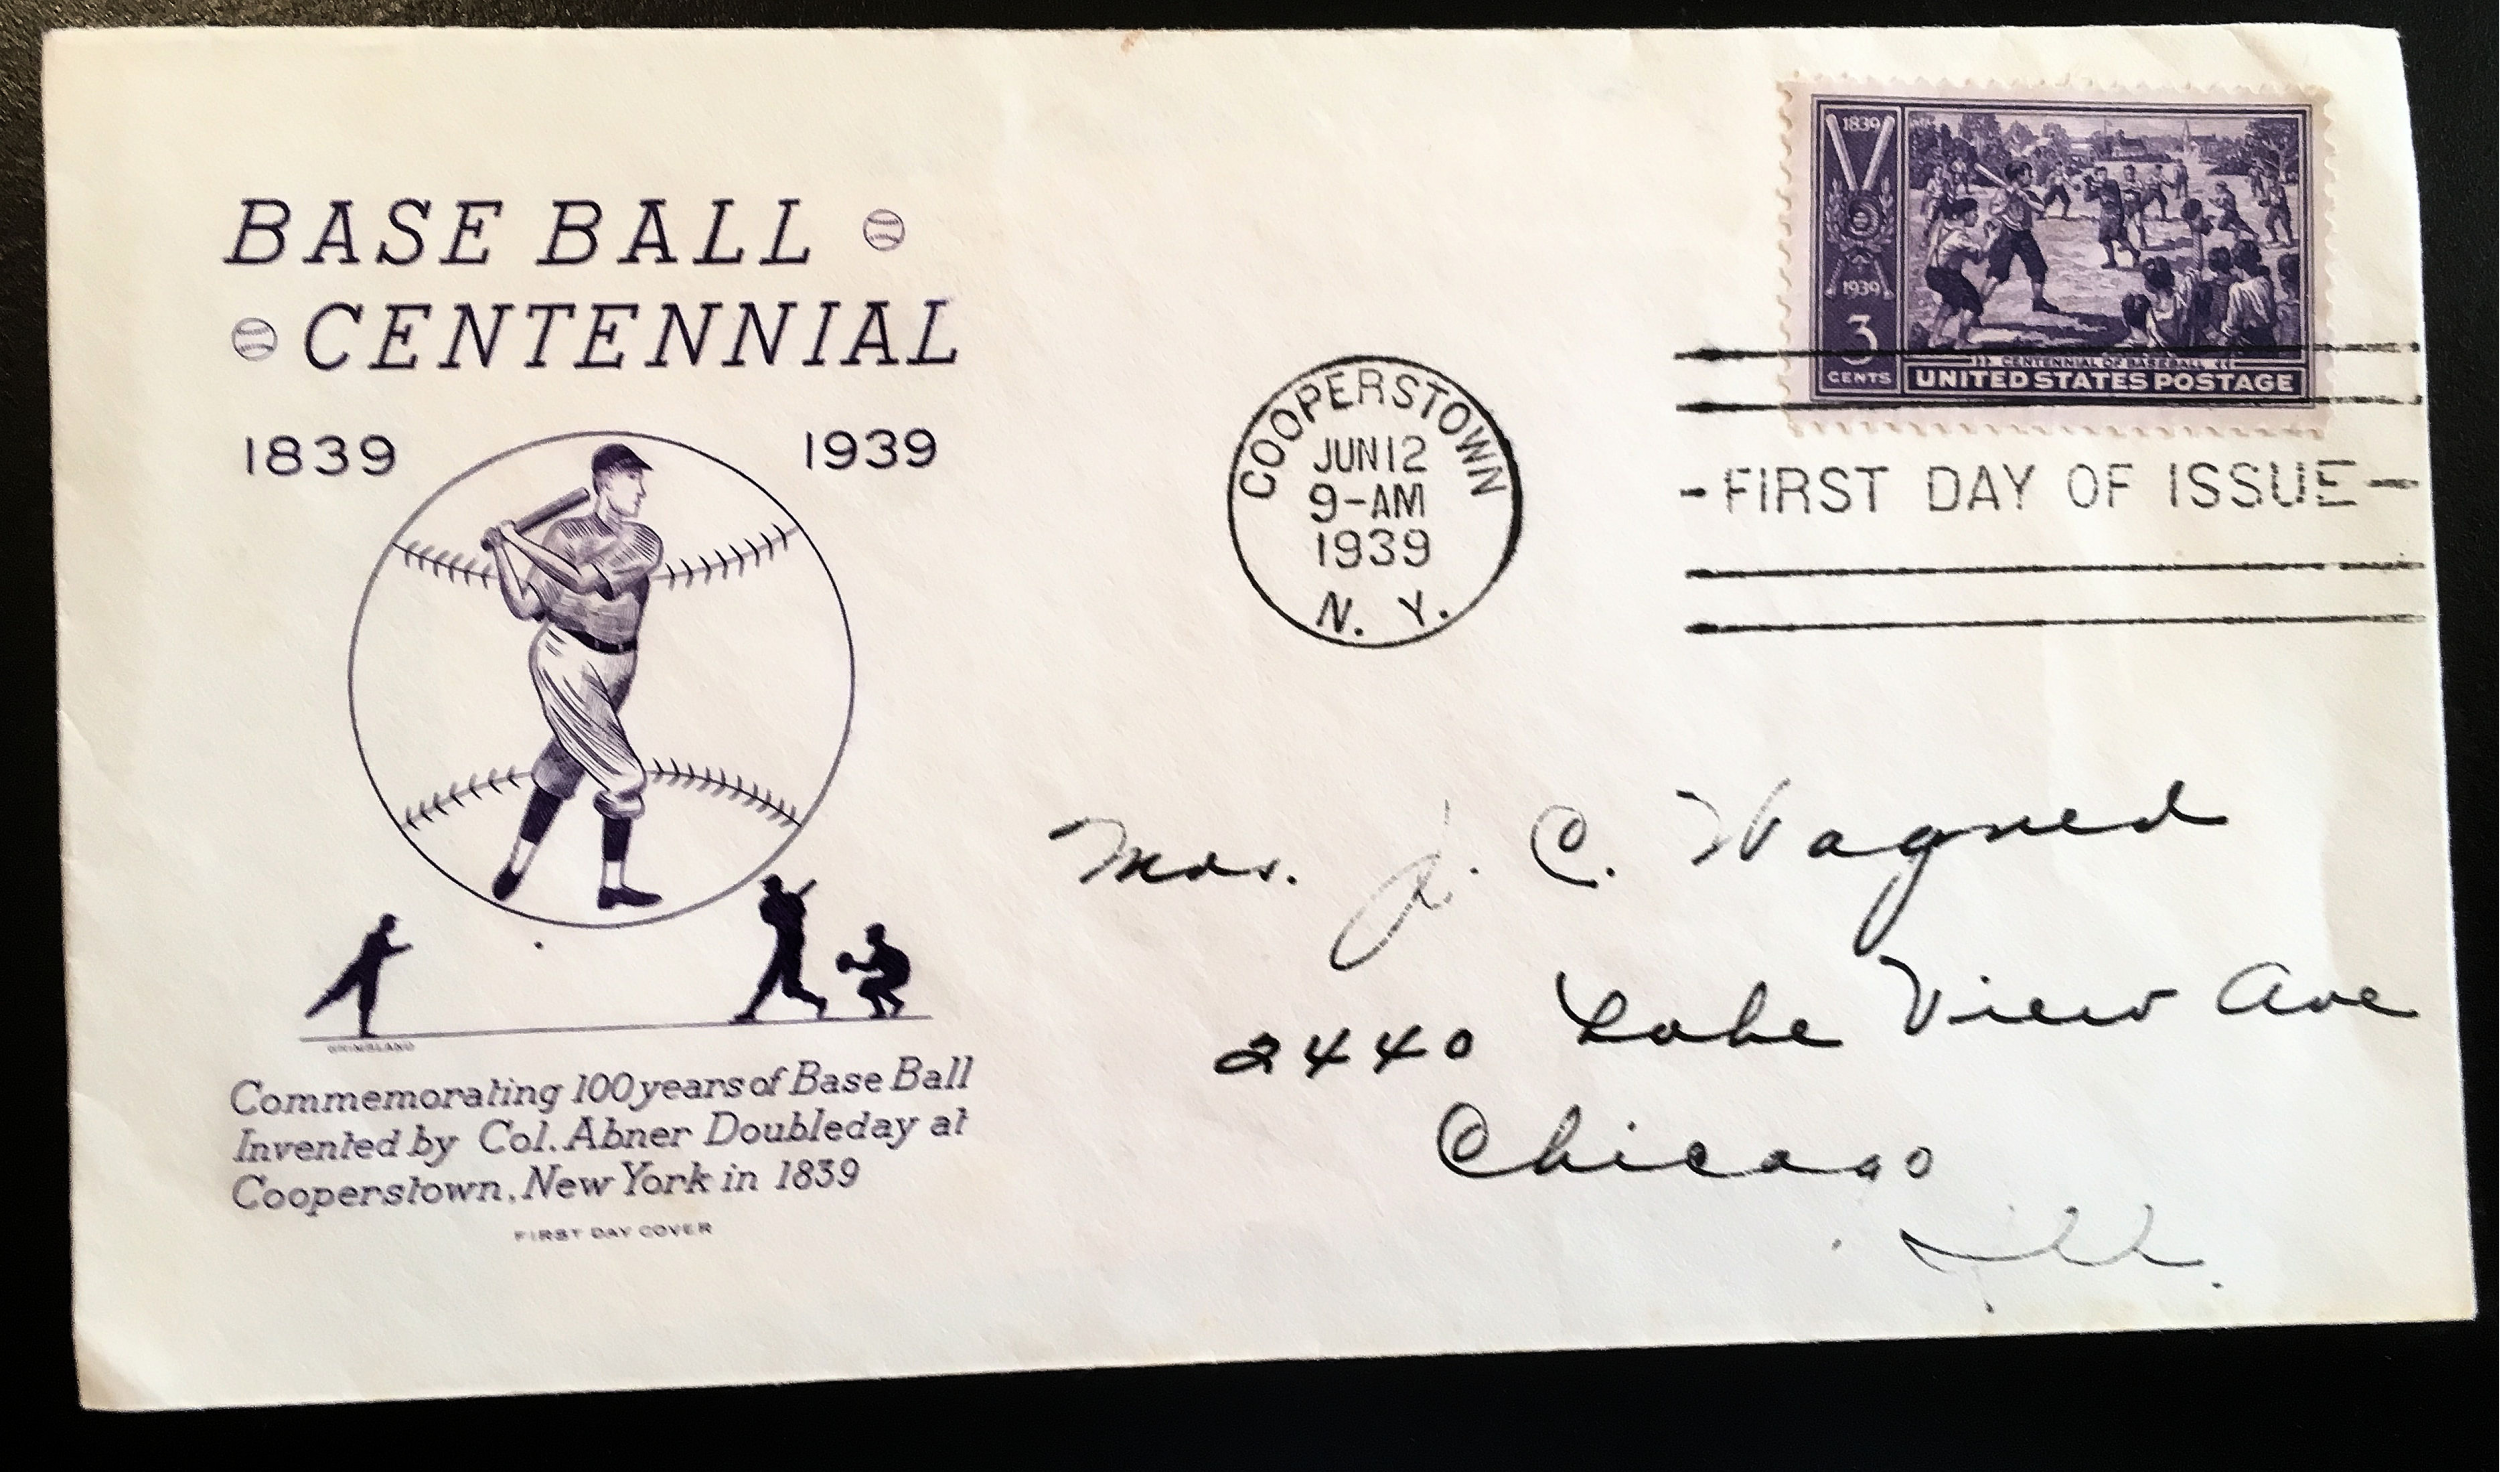 BASE BALL
CENTENNIAL
1839 1939
GRIMSLAND
Commemorating 100 years of Base Ball
Invented by Col. Abner Doubleday at
Cooperstown, New York in 1839
FIRST DAY COVER
COOPERSTOWN
JUN 12
9-AM
1939
N. Y.
1839
1939
3
CENTS
CENTENNIAL OF BASEBALL
UNITED STATES POSTAGE
-FIRST DAY OF ISSUE-
Mrs. J. C. Wagner
2440 Lake View Ave
Chicago
Ill.